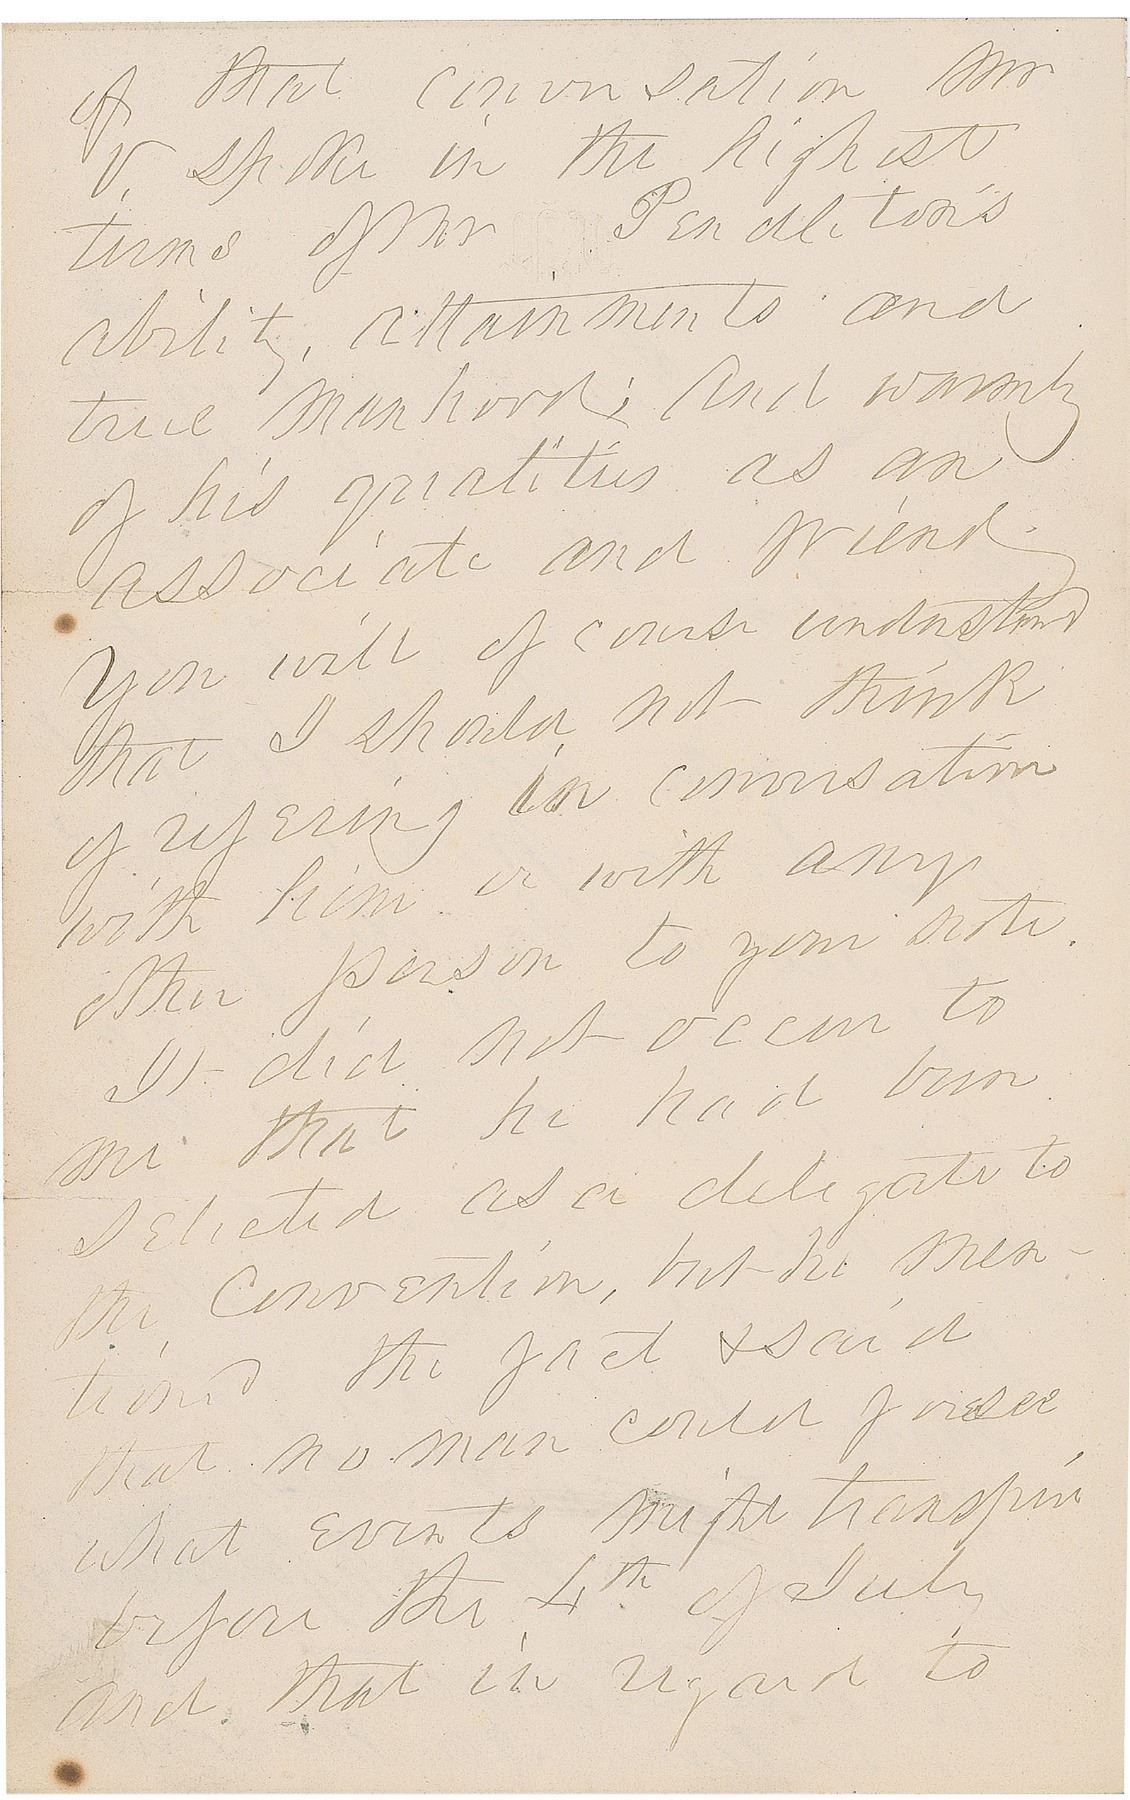 of that conversation Mr
V. spoke in the highest
terms of Mr Pendleton's
ability, attainments and
true manhood; and warmly
of his qualities as an
associate and friend.
You will of course understand
that I should not think
of refering in conversation
with him or with any
other person to your note.
It did not occur to
me that he had been
selected as a delegate to
the Convention, but he men-
tioned the fact & said
that no man could foresee
what events might transpire
before the 4th of July
and that in regard to